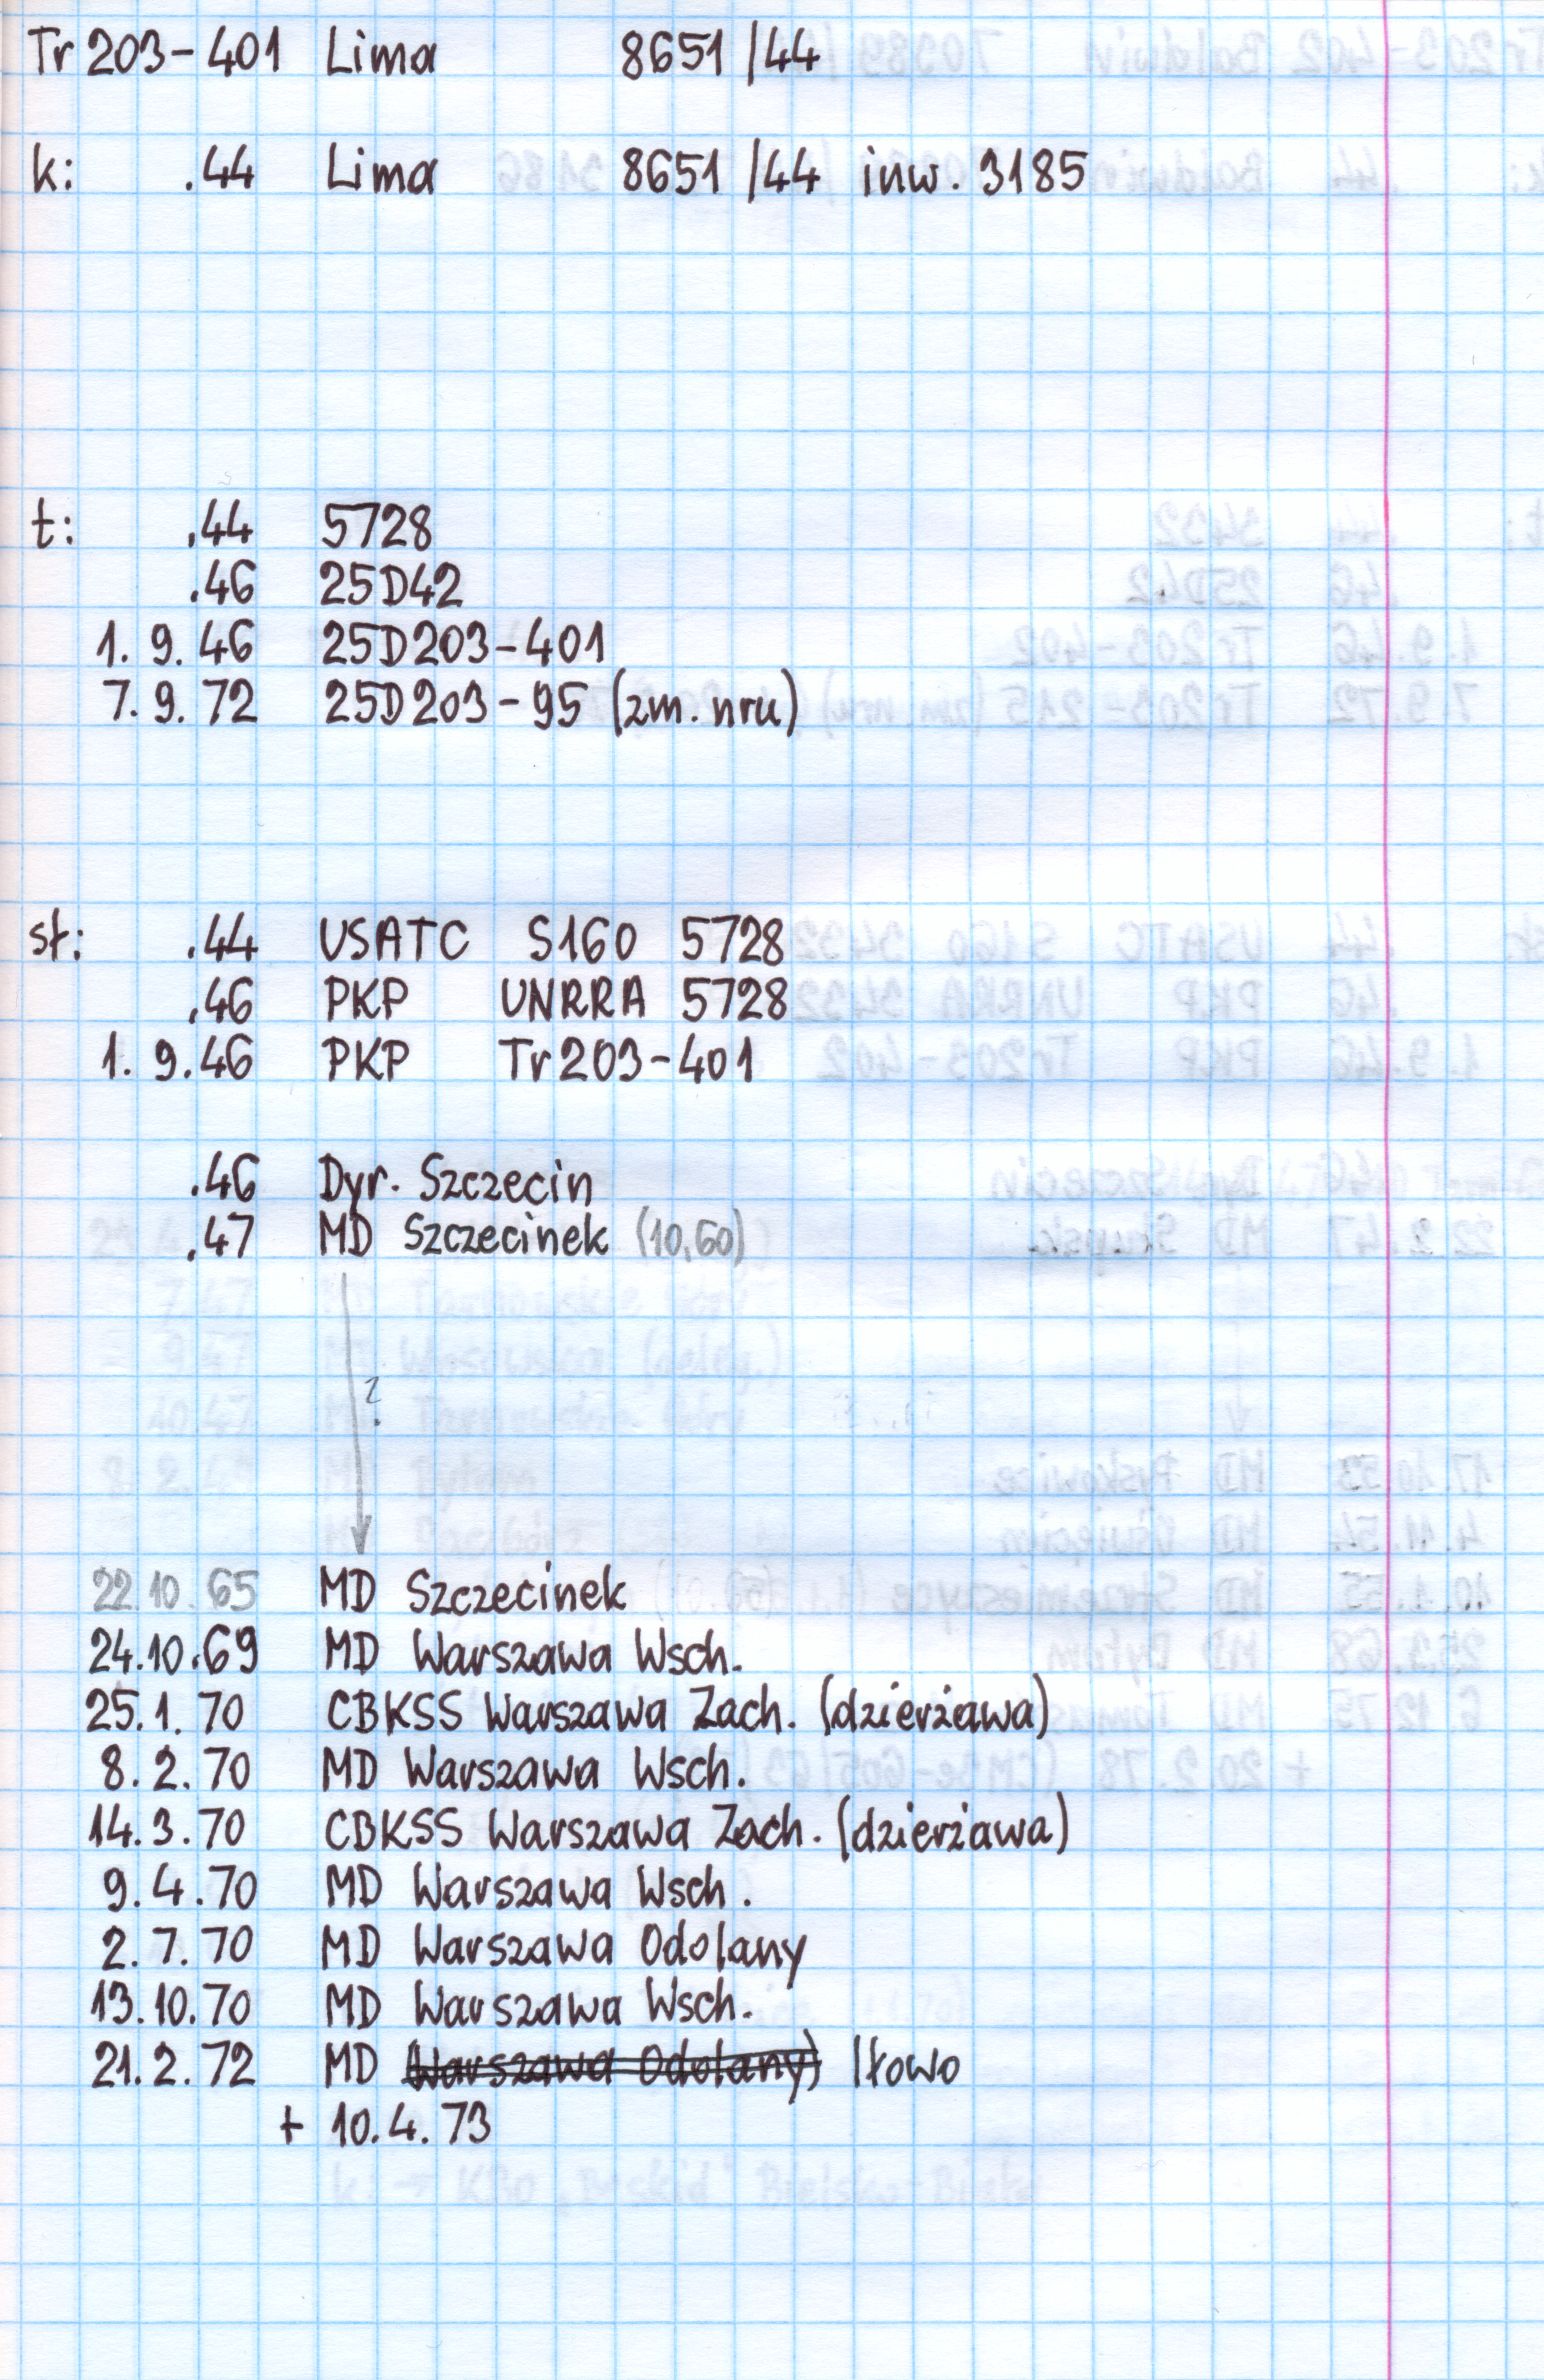 Tr 203-401 Lima 8651/44
k: .44 Lima 8651/44 inw. 3185
t: .44 5728
.46 25D42
1. 9. 46 25D203-401
7. 9. 72 25D203-95 (zm. nru)
st: .44 USATC S160 5728
.46 PKP UNRRA 5728
1. 9. 46 PKP Tr203-401
.46 Dyr. Szczecin
.47 MD Szczecinek (10,60)
?
22.10.65 MD Szczecinek
24.10.69 MD Warszawa Wsch.
25.1.70 CBKSS Warszawa Zach. (dzierżawa)
8.2.70 MD Warszawa Wsch.
14.3.70 CBKSS Warszawa Zach. (dzierżawa)
9.4.70 MD Warszawa Wsch.
2.7.70 MD Warszawa Odolany
13.10.70 MD Warszawa Wsch.
21.2.72 MD (Warszawa Odolany) Iłowo
+ 10.4.73